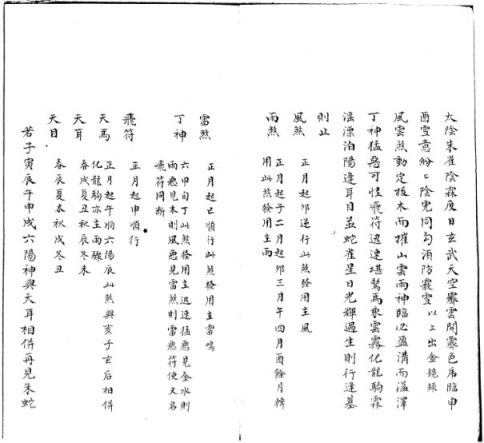 太陰朱雀陰霖度日玄武天空靉雲開霽色為臨申
酉雪意紛〻陰兜同勾消防雹以上出金鏡録
風雲煞動定拔木而摧山雲雨神臨必盈溝而溢澤
丁神猛惡可怪飛符迅速堪驚馬乘雲霧化龍駒霖
淫漂泊陽逢耳目孟蛇雀星日光輝遇生則行逢墓
則止
風煞 正月起卯逆行此煞發用主風
雨煞 正月起子二月起卯三月午四月酉餘月轉
用此煞發用主雨
雷煞 正月起巳順行此煞發用主雷鳴
丁神 六甲旬丁此煞發用主迅速猛惡見金水則
雨惡見木則風惡見雷煞則雷惡符使又名
飛符同斷
飛符 正月起申順行
天馬 正月起午順六陽辰此煞與亥子玄后相併
化龍駒亦主雨驟
天耳 春戌夏丑秋辰冬未
天目 春辰夏未秋戌冬丑
若子寅辰午申戌六陽神與天耳相併再見朱蛇